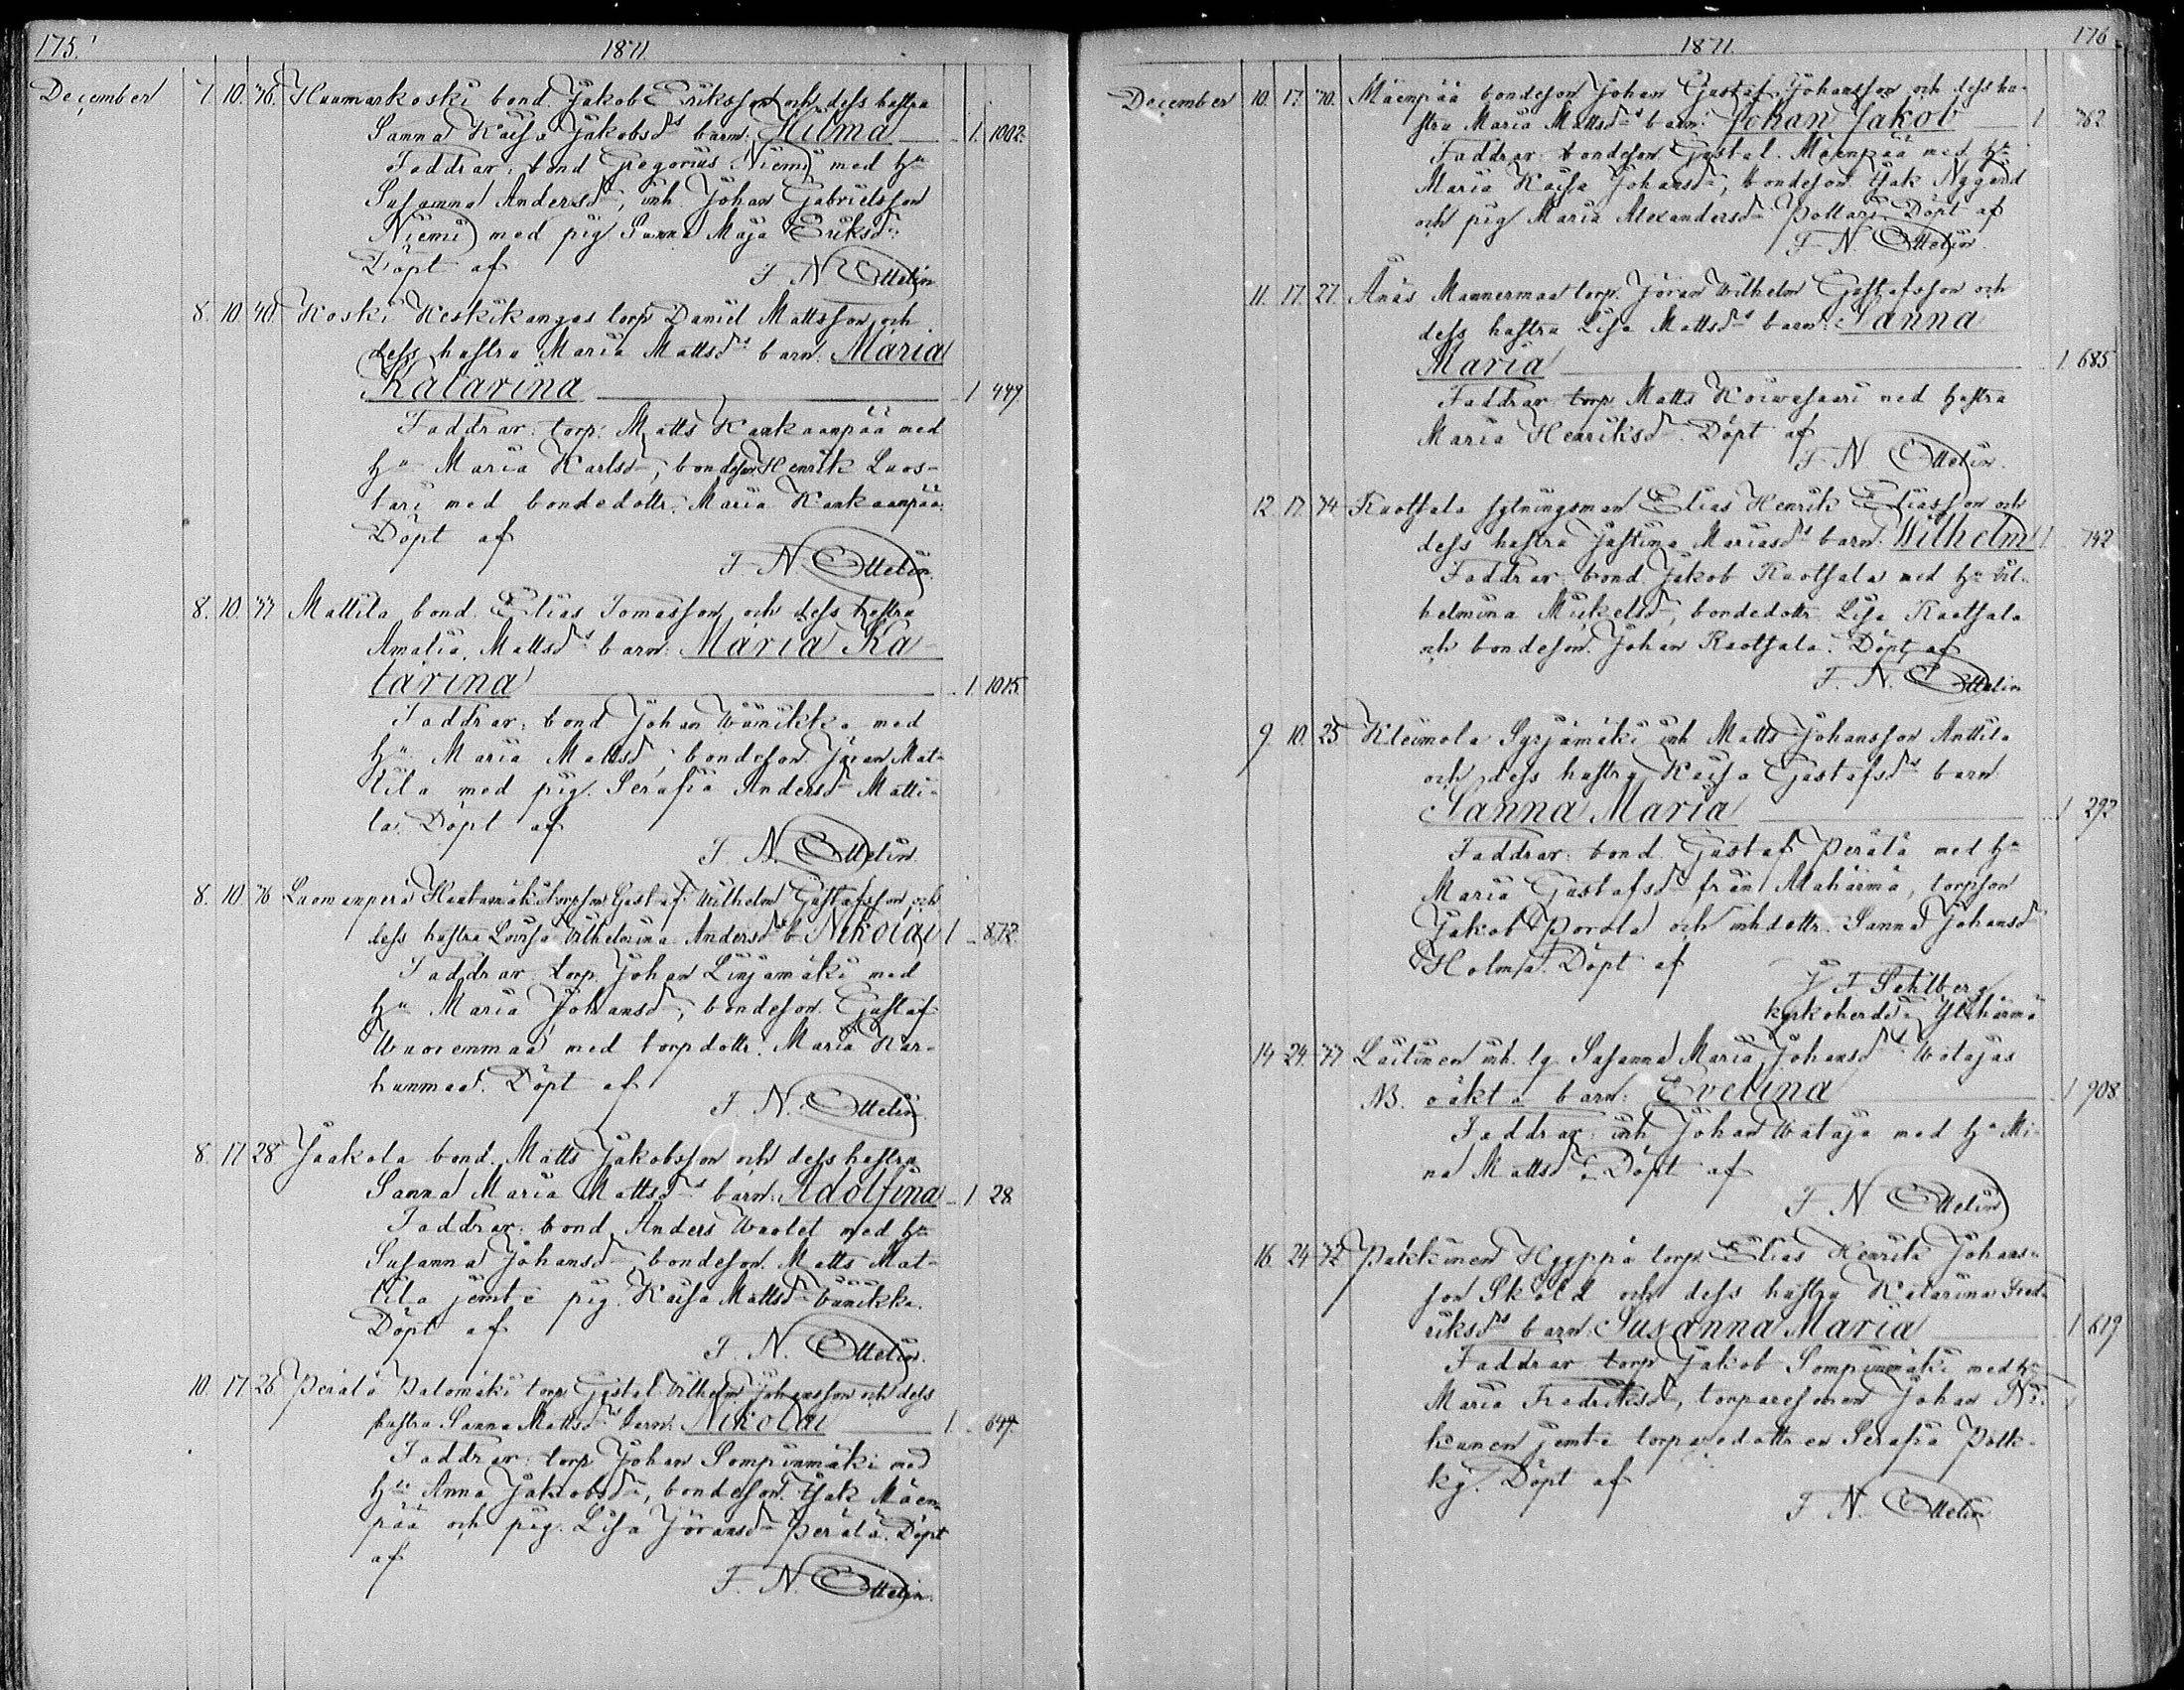 175. 1871.
December 7. 10. 38. Haumarkoski bond. Jakob Eriksson och dess hustru
Sanna Kaisa Jakobsds barn: Hilma 1. 1002.
Faddrar: bond Gregorius Niemi med hu
Susanna Andersd, inh. Johan Gabrielsson
Niemi med pig Sanna Maja Eriksd:
Döpt af F N Ottelin
8. 10. 40. Koski Keskikangas torp Daniel Mattsson och
dess hustru Maria Mattsds barn: Maria
Katarina 1 449
Faddrar: torp: Matts Kankaanpää med
hu Maria Karlsd, bondeson Henrik Luos-
tari med bondedottr. Maria Kankaanpää.
Döpt af
F N. Ottelin.
8. 10. 37 Mattila bond. Elias Tomasson och dess hustru
Amalia Mattsds barn: Maria Ka-
tarina 1 1015.
Faddrar: bond Johan Wäinikka med
hu Maria Mattsd, bondeson. Jöran Mat-
tila med pig. Serafia Andersd Matti-
la. Döpt af
F. N. Ottelin
8. 10. 36 Luomanperä Haatamäki torpson Gustaf Wilhelm Gustafsson och
dess hustru Lovisa Vilhelmina Andersds b. Nikolai 1 872.
Faddrar: torp. Johan Linjamäki med
hu Maria Johansd, bondeson. Gustaf
Wuorenmaa med torpdottr. Maria Kar-
hunmaa. Döpt af
F N. Ottelin.
8. 17 28 Jaakola bond. Matts Jakobsson och dess hustru
Sanna Maria Mattsds barn: Adolfina 1 28.
Faddrar: bond. Anders Waolet med hu
Susanna Johansd, bondeson. Matts Mat-
tila jemte pig. Kaisa Mattsd Wäinikka.
Döpt af
F. N. Ottelin.
10. 17 26 Perälä Palomäki torp Gustaf Vilhelm Johansson och dess
hustru Sanna Mattsds barn: Nikolai 1. 644.
Faddrar: torp Johan Sompinmäki med
hu Anna Jakobsd, bondeson. Isak Mäen-
pää och pig. Lisa Jöransd Perälä. Döpt
af
F. N. Ottelin.
1871. 176
December 10. 17. 30. Mäenpää bondeson Johan Gustaf Johansson och dess hu-
stru Maria Mattsds barn: Johan Jakob 1 762
Faddrar: bondeson Gustaf Mäenpää med hu
Maria Kaisa Johansd, bondeson Isak Nygård
och pig Maria Alexandersd Pollari. Döpt af
F N. Ottelin.
11. 17. 27. Änäs Mannermaa torp. Jöran Wilhelm Gustafsson och
dess hustru Lisa Mattsds barn: Sanna
Maria 1 685
Faddrar torp Matts Koiwasaari med hustru
Maria Henriksd. Döpt af
F N. Ottelin.
12 17. 34 Ruotsala sytningsman Elias Henrik Eliasson och
dess hustru Justina Mariasds barn. Wilhelm 1 742
Faddrar: bond. Jakob Ruotsala med hu Vil-
helmina Mickelsd, bondedottr Lisa Ruotsala
och bondeson. Johan Ruotsala. Döpt af
F. N. Ottelin
9. 10. 25. Kleimola Syrjämäki inh Matts Johansson Anttila
och dess hustru Kaisa Gustafsds barn
Sanna Maria 1 292
Faddrar: bond. Gustaf Perälä med hu
Maria Gustafsd från Alahärmä, torpson
Jakob Porola och inhdottr. Sanna Johansd
Holma. Döpt af
J F Sahlberg
kyrkoherde i Ylihärmä
14 24. 37 Laitinen inh. lg Susanna Maria Johansds Wataja's
NB. oäkta barn: Evelina 1 908.
Faddrar: inh Johan Wataja med hu Mi-
na Mattsd. Döpt af
F N Ottelin
16. 24 32 Pakkinen Hyyppä torp. Elias Henrik Johans-
son Sköld och dess hustru Katarina Fred-
riksds barn: Susanna Maria 1 619
Faddrar torp Jakob Sompinmäki med hu
Maria Fredriksd, torparesonen Johan Ni-
kunen jemte torparedottren Serafia Pölk-
ky. Döpt af
F N. Ottelin